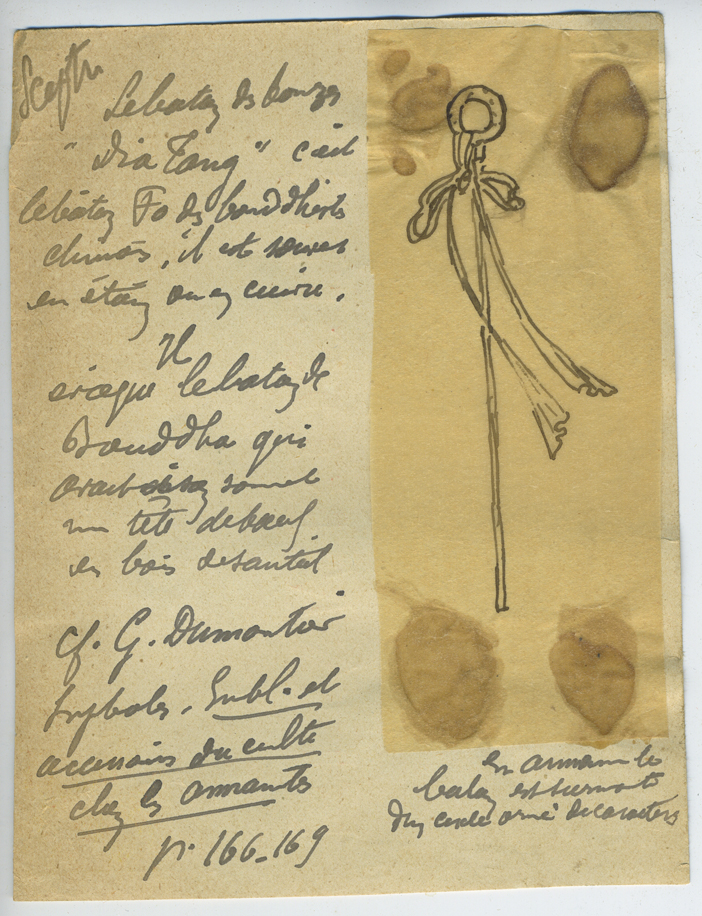 Sceptre
Le baton des bonzes
"Dia Tang" c'est
le bâton Fo des bouddhistes
chinois, il est souvent
en étain ou en cuivre.
Il
évoque le baton de
Bouddha qui
avait à son sommet
une tête de boeuf
en bois de santal
cf. G. Dumoutier
Symboles. Embl. et
accessoires du culte
chez les annamites
p. 166-169
En annam le
baton est surmonté
d'un cercle orné de caractères